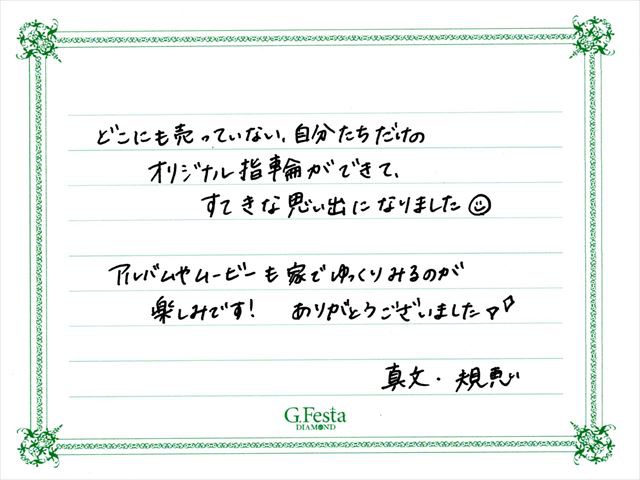 どこにも売っていない、自分たちだけの
オリジナル指輪ができて、
すてきな思い出になりました☺
アルバムやムービーも家でゆっくりみるのが
楽しみです! ありがとうございました♡♡
真文・規恵
G.Festa
DIAMOND